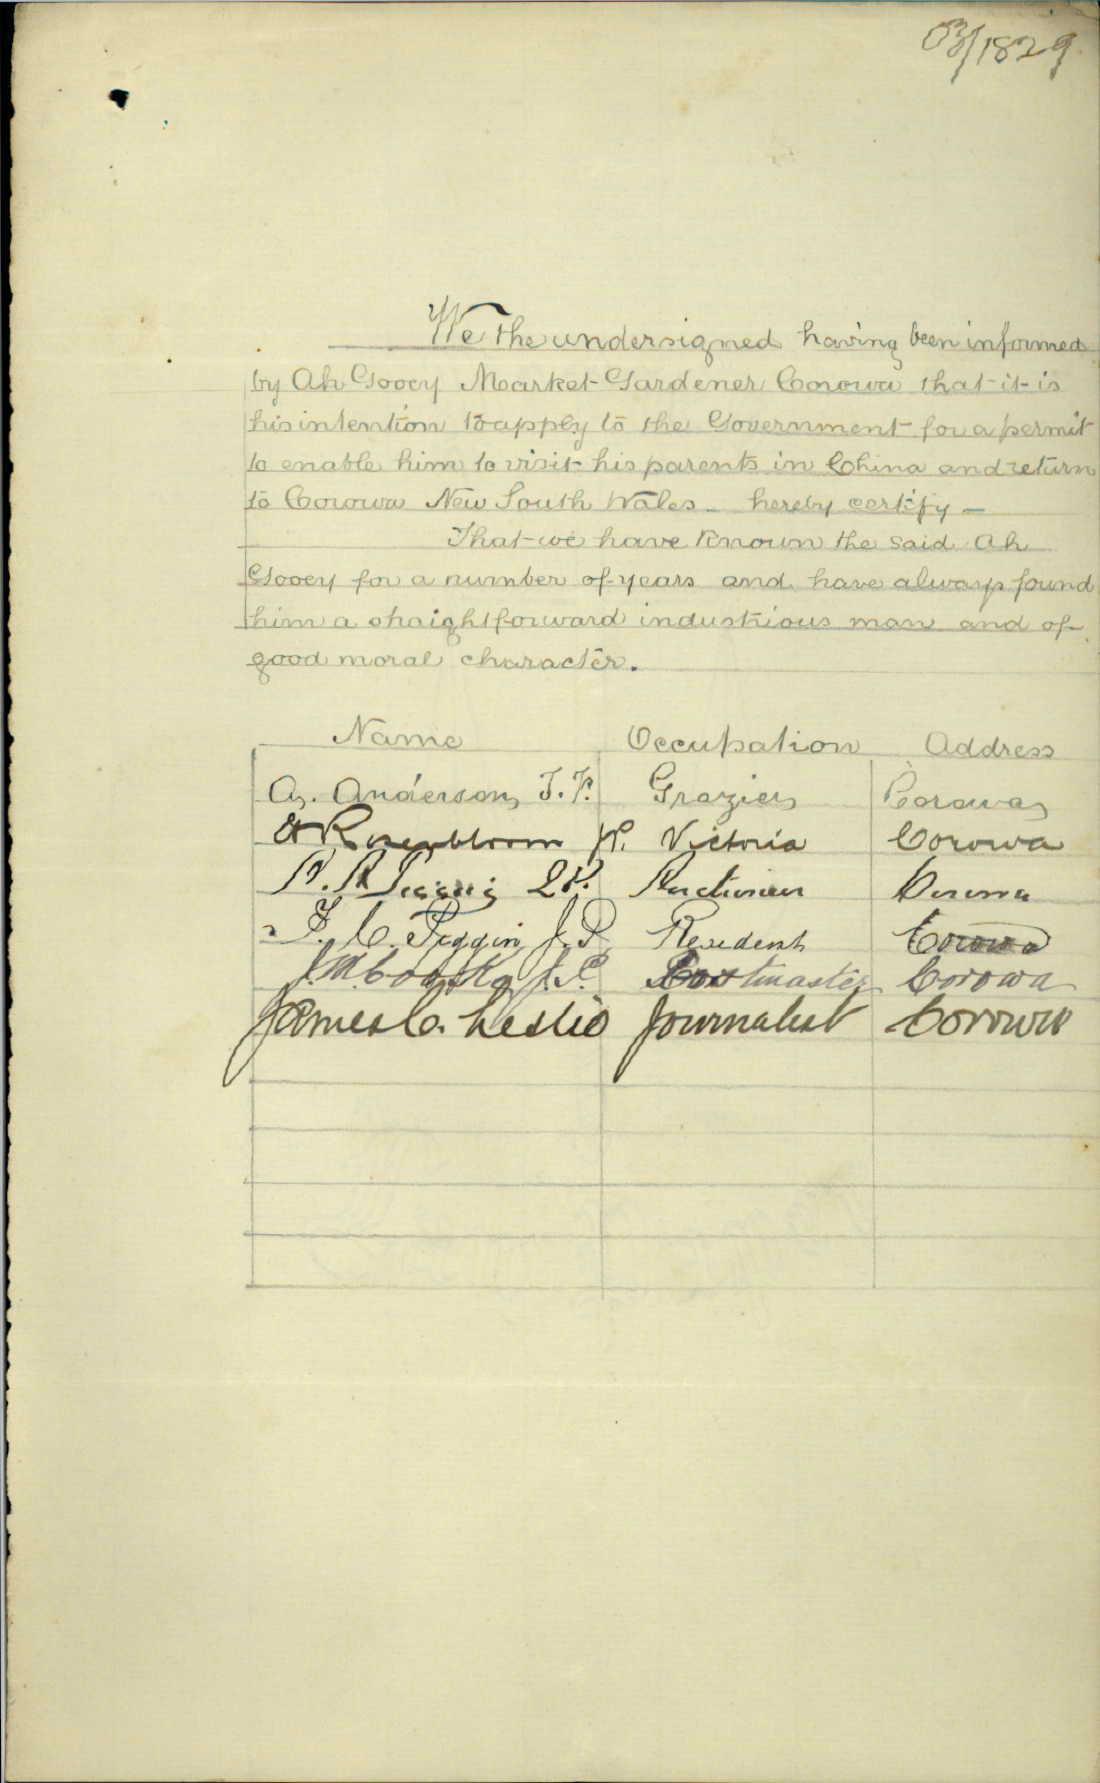 03/1829
We the undersigned having been informed
by Ah Gooey Market Gardener Corowa that it is
his intention to apply to the Government for a permit
to enable him to visit his parents in China and return
to Corowa New South Wales hereby certify -
That we have known the said Ah
Gooey for a number of years and have always found
him a straightforward industrious man and of
good moral character.
Name Occupation Address
A. Anderson, J.P. Grazier Corowa
Rosenbloom Victoria Corowa
J.P. Auctioneer Corowa
F. C. Piggin J.P. Resident Corowa
J.P. Postmaster Corowa
James C. Leslie Journalist Corowa